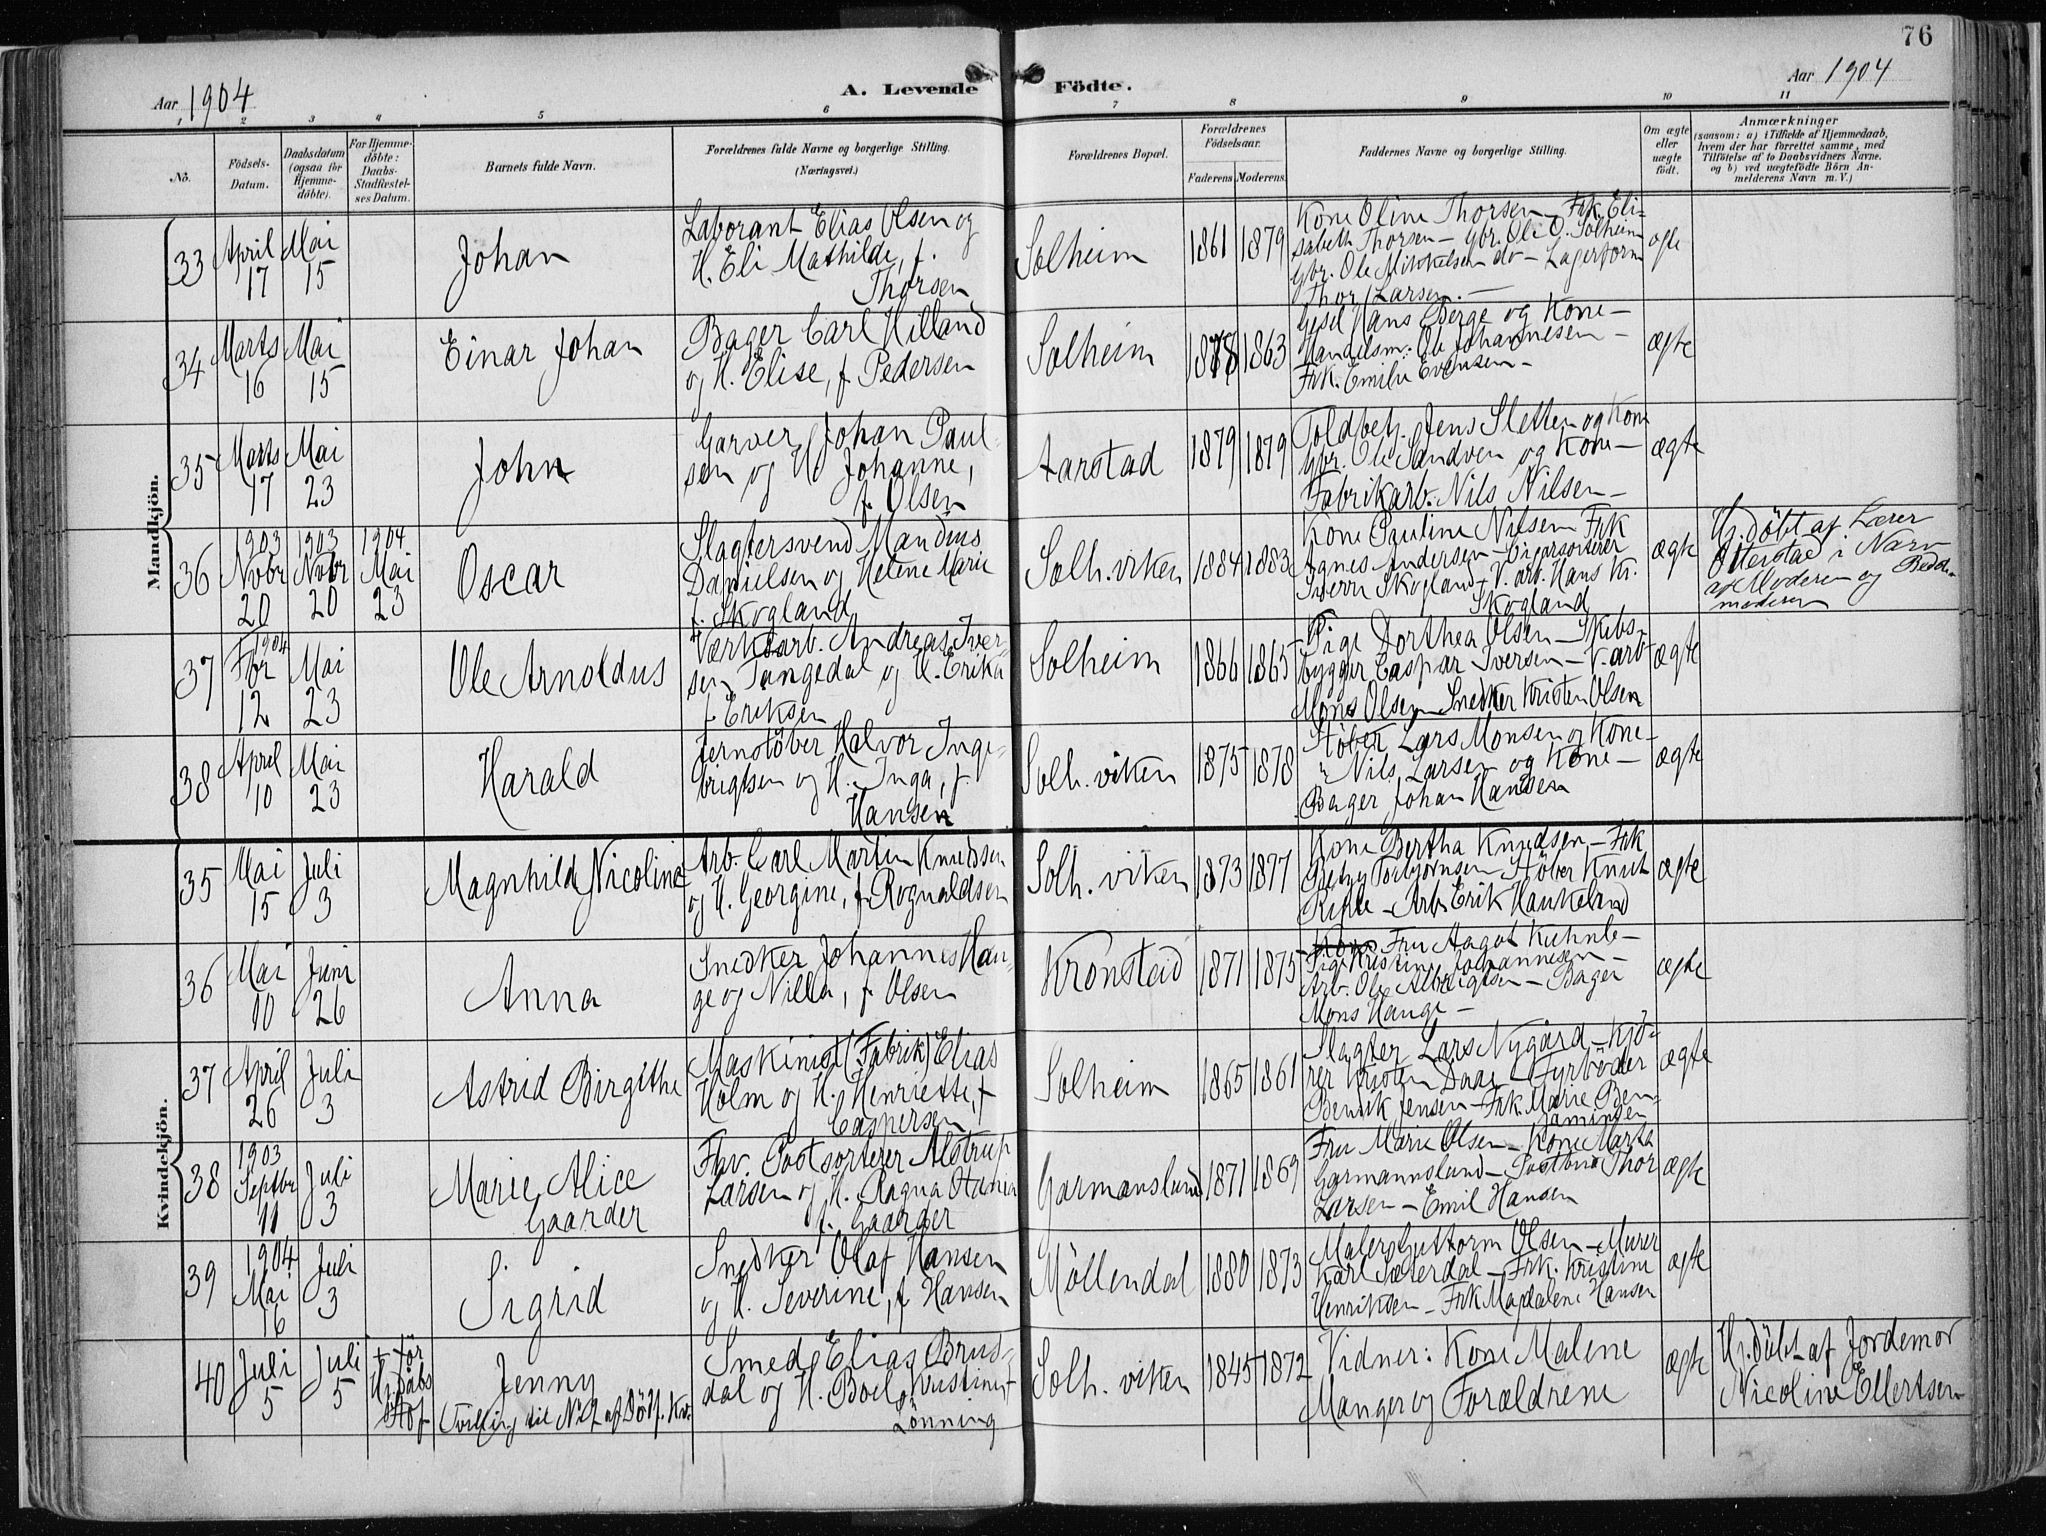 76
Aar 1904
A. Levende Födte.
Aar 1904
1 2 3 4 5 6 7 8 9 10 11
No.
Födsels-Datum.
Daabsdatum (ogsaa for Hjemmedöbte).
For Hjemmedöbte: Daabs-Stadfæstelses Datum.
Barnets fulde Navn.
Forældrenes fulde Navne og borgerlige Stilling. (Næringsvei.)
Forældrenes Bopæl.
Forældrenes Födselsaar.
Faderens Moderens.
Faddernes Navne og borgerlige Stilling.
Om ægte eller uægte födt.
Anmærkninger
(saasom: a) i Tilfælde af Hjemmedaab, hvem der har forrettet samme, med Tilföielse af to Daabsvidners Navne, og b) ved uægtefödte Börn Anmelderens Navn m. V.)
Mandkjön.
33 April 17 Mai 15
Johan
Laborant Elias Olsen og
H. Eli Mathilde, f.
Thorsen
Solheim 1861 1879
Kone Oline Thorsen – Frk. Eli-
sabeth Thorsen – Gbr. Ole O. Solheim
Gbr. Ole Mikkelsen do – Lagerform
Thor Larsen. –
ægte
34 Marts 16 Mai 15
Einar Johan
Bager Carl Hilland
og H. Elise, f. Pedersen
Solheim 1878 1863
Hans Berge og Kone –
Handelsm: Ole Johannesen –
Frk. Emilie Evensen –
ægte
35 Marts 17 Mai 23
John
Garver Johan Paul-
sen og H. Johanne,
f. Olsen
Aarstad 1879 1879
Toldbetj. Jens Sletten og Kone
Gbr. Ole Sandven og Kone –
Fabrikarb. Nils Nilsen –
ægte
36 1903 Novbr 20 1903 Novbr 20 1904 Mai 23
Oscar
Slagtersvend Mandius
Danielsen og Helene Marie
f. Skogland
Solh. viken 1884 1883
Kone Pauline Nilsen Frk
Agnes Andersen – Cigarsorterer
Sverre Skogland – V. arb. Hans Kr.
Skogland
ægte
Hj. döbt af Lærer
Otterstad i Nærv
af Moderen og Bedste-
moderen
37 1904 Febr 12 Mai 23
Ole Arnoldus
Værksarb. Andreas Iver-
sen Tangedal og H. Erika
f. Eriksen
Solheim 1866 1865
Pige Dorthea Olsen – Skibs-
bygger Caspar Iversen – V. arb
Mons Olsen Snedker Kristen Olsen
ægte
38 April 10 Mai 23
Harald
Jernstöber Halvor Inge-
brigtsen og H. Inga, f.
Hansen
Solh. viken 1875 1878
Støber Lars Monsen og Kone –
" Nils Larsen og Kone –
Bager Johan Hansen
ægte
Kvindekjön.
35 Mai 15 Juli 3
Magnhild Nicoline
Arb. Carl Martin Knudsen
og H. Georgine, f. Rognaldsen
Solh. viken 1873 1877
Kone Bertha Knudsen – Frk
Betzy Torbjörnsen Stöber Knut
Rifle – Arb. Erik Haukeland
ægte
36 Mai 10 Juni 26
Anna
Snedker Johannes Hau-
ge og Nilla, f. Olsen
Kronstad 1871 1875
Kone Fru Aagot Kuhnle –
Pige Kristine Johannesen –
Arb. Ole Albrigtsen – Bager
Mons Hauge –
ægte
37 April 26 Juli 3
Astrid Birgithe
Maskinist (Fabrik) Elias
Holm og H. Henriette, f
Caspersen
Solheim 1865 1861
Slagter Lars Nygård – Kjö-
rer Kristen Daae – Fyrböder
Bendik Jensen – Frk. Marie Ben-
jaminsen
ægte
38 1903 Septbr 11 Juli 3
Marie Alice
Gaarder
Fhv. Postsorterer Alstrup
Larsen og H. Ragna Hanna
f. Gaarder
Garmanslund 1871 1869
Fru Marie Olsen – Kone Marta
Garmannslund – Postbud Thor
Larsen – Emil Hansen
ægte
39 1904 Mai 16 Juli 3
Sigrid
Snedker Olaf Hansen
og H. Severine, f. Hansen
Möllendal 1880 1873
Maler Guttorm Olsen – Murer
Karl Sæterdal – Frk. Kristine
Henriksen – Frk Magdalene Hansen
ægte
40 Juli 5 Juli 5 + för Hj. Dåbs Stdf
Jenny
Tvilling til No 27 af Döf. Kv.
Smed Elias Brus-
dal og H. Boel Kristine f
Lönning
Solh. viken 1845 1872
Vidner: Kone Malene
Manger og Forældrene
ægte
Hj. döbt af Jordemor
Nicoline Ellertsen